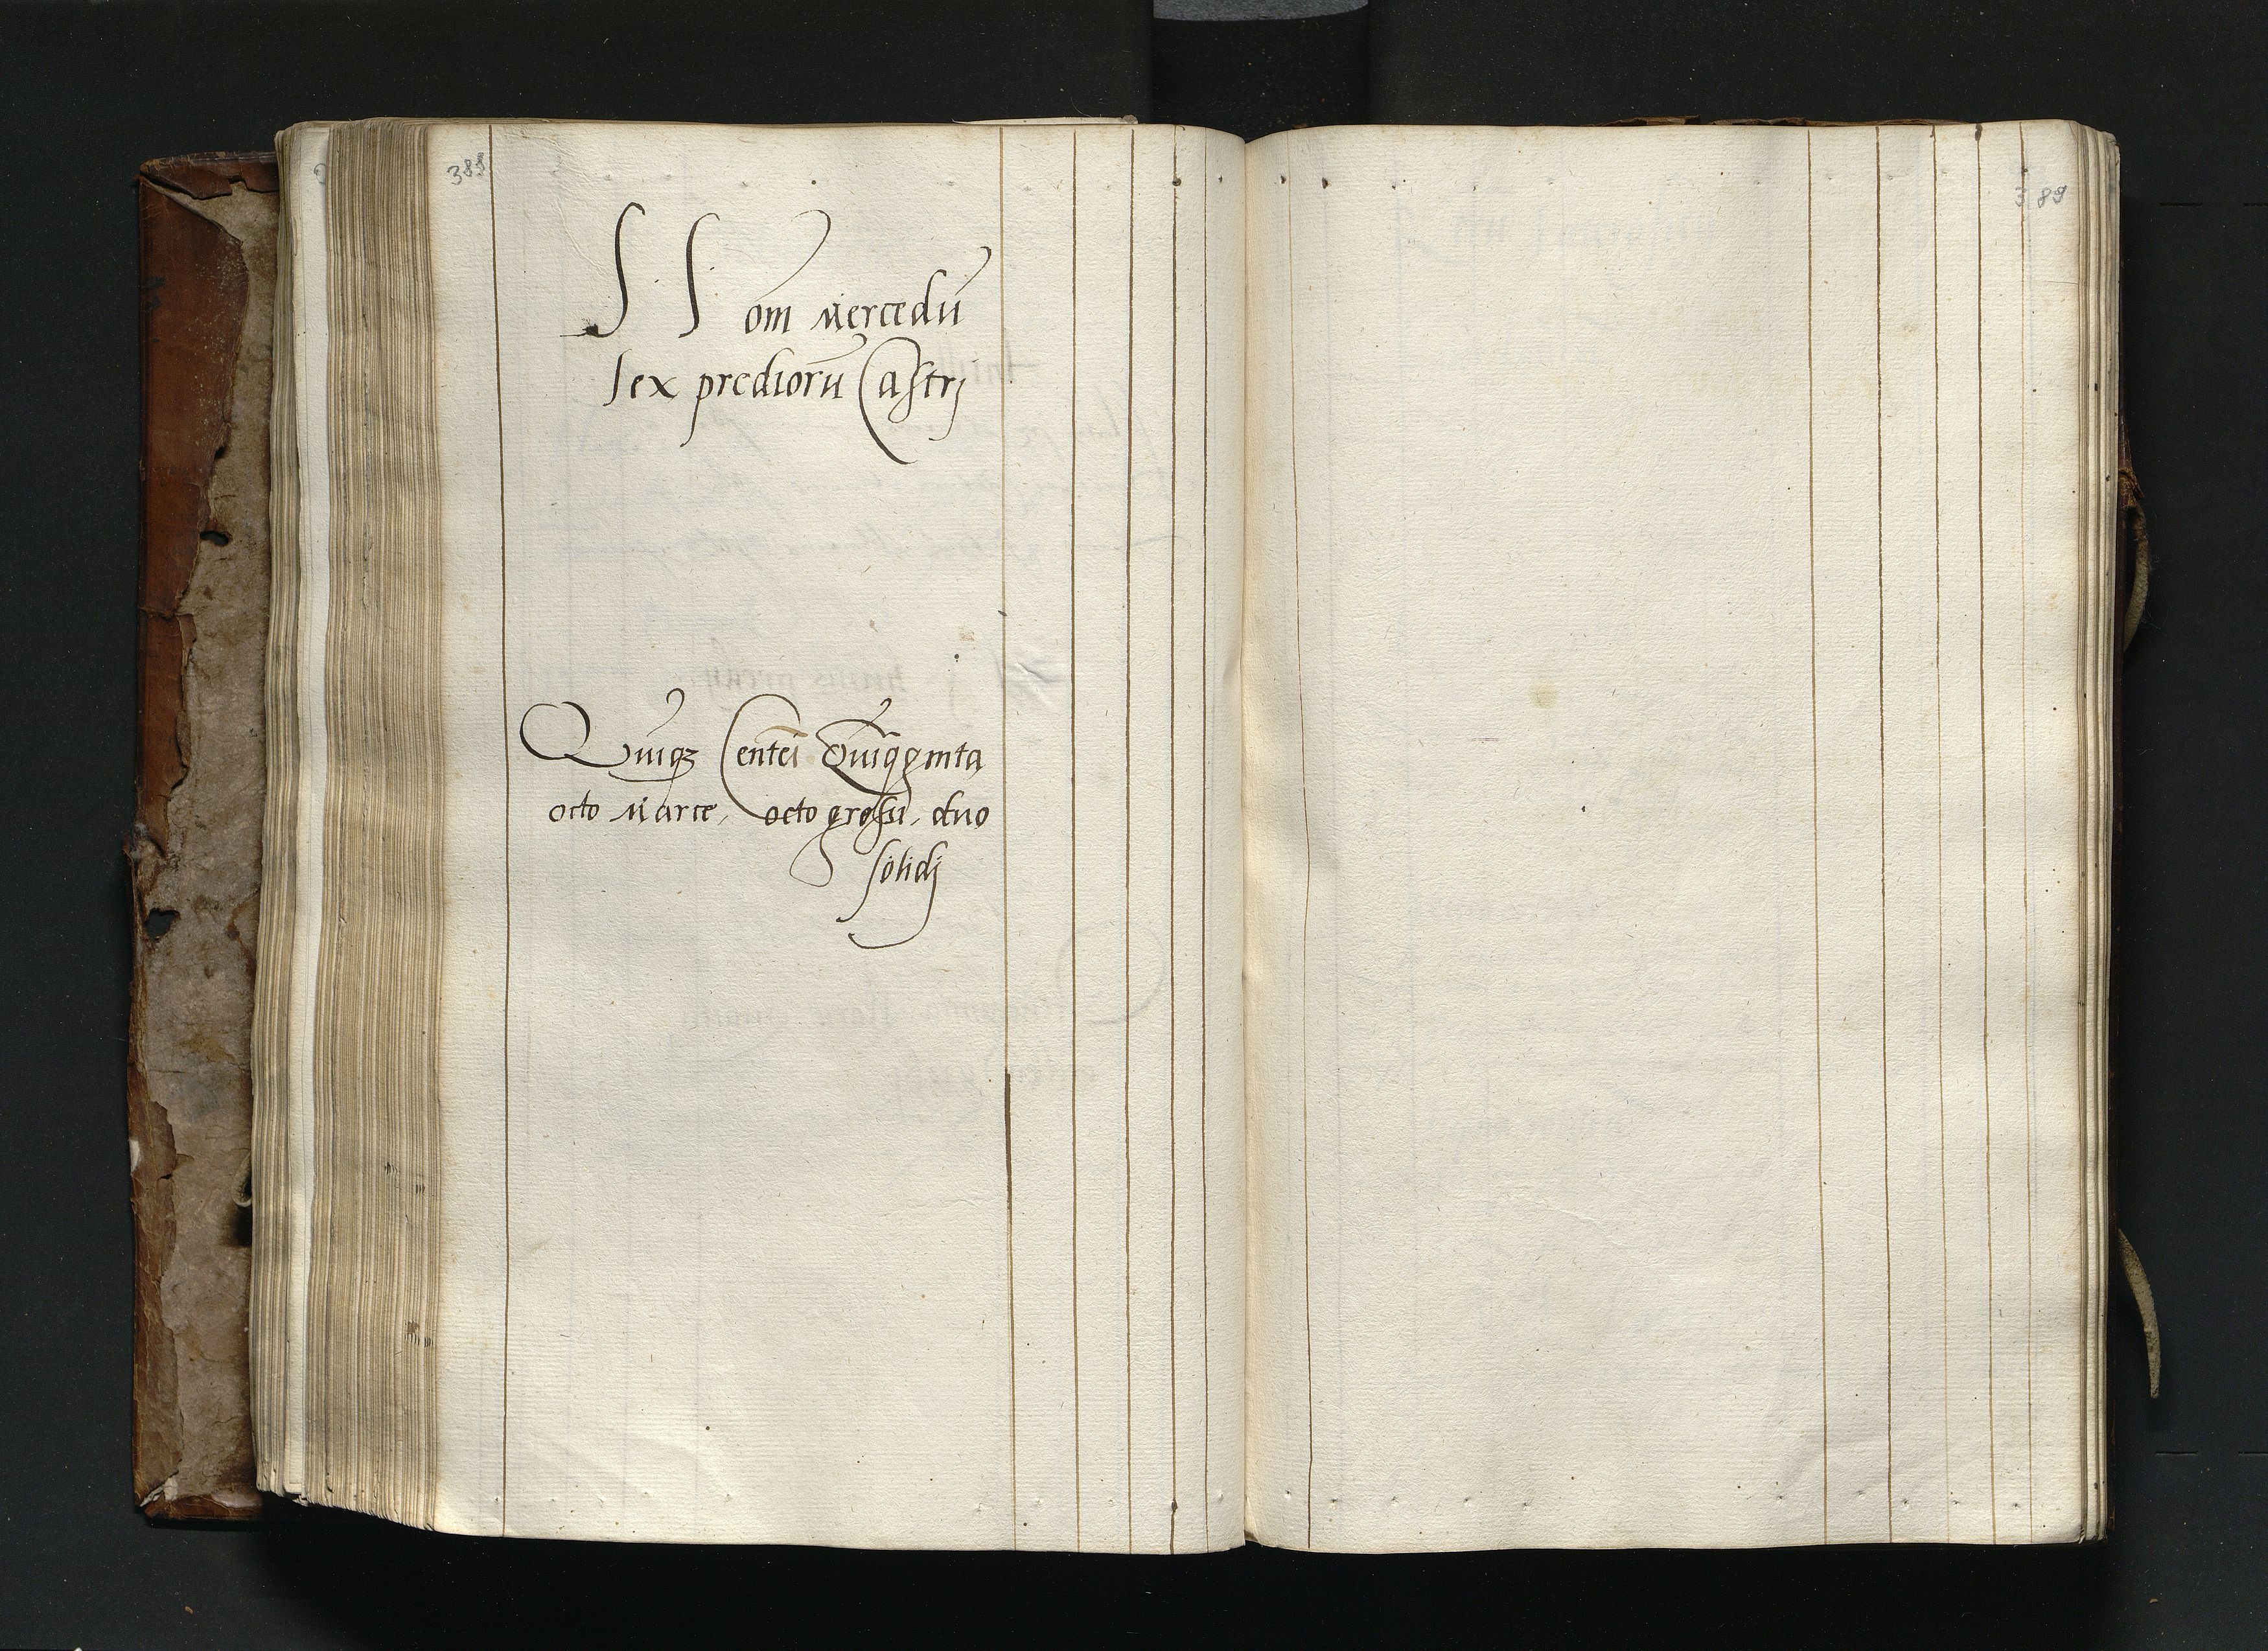 388
S S om̄ Mercedū
sex predioru̅ Castrj
Quiqȝ Centei Quiqginta
octo Marce, octo grossi, duo
solidj
389